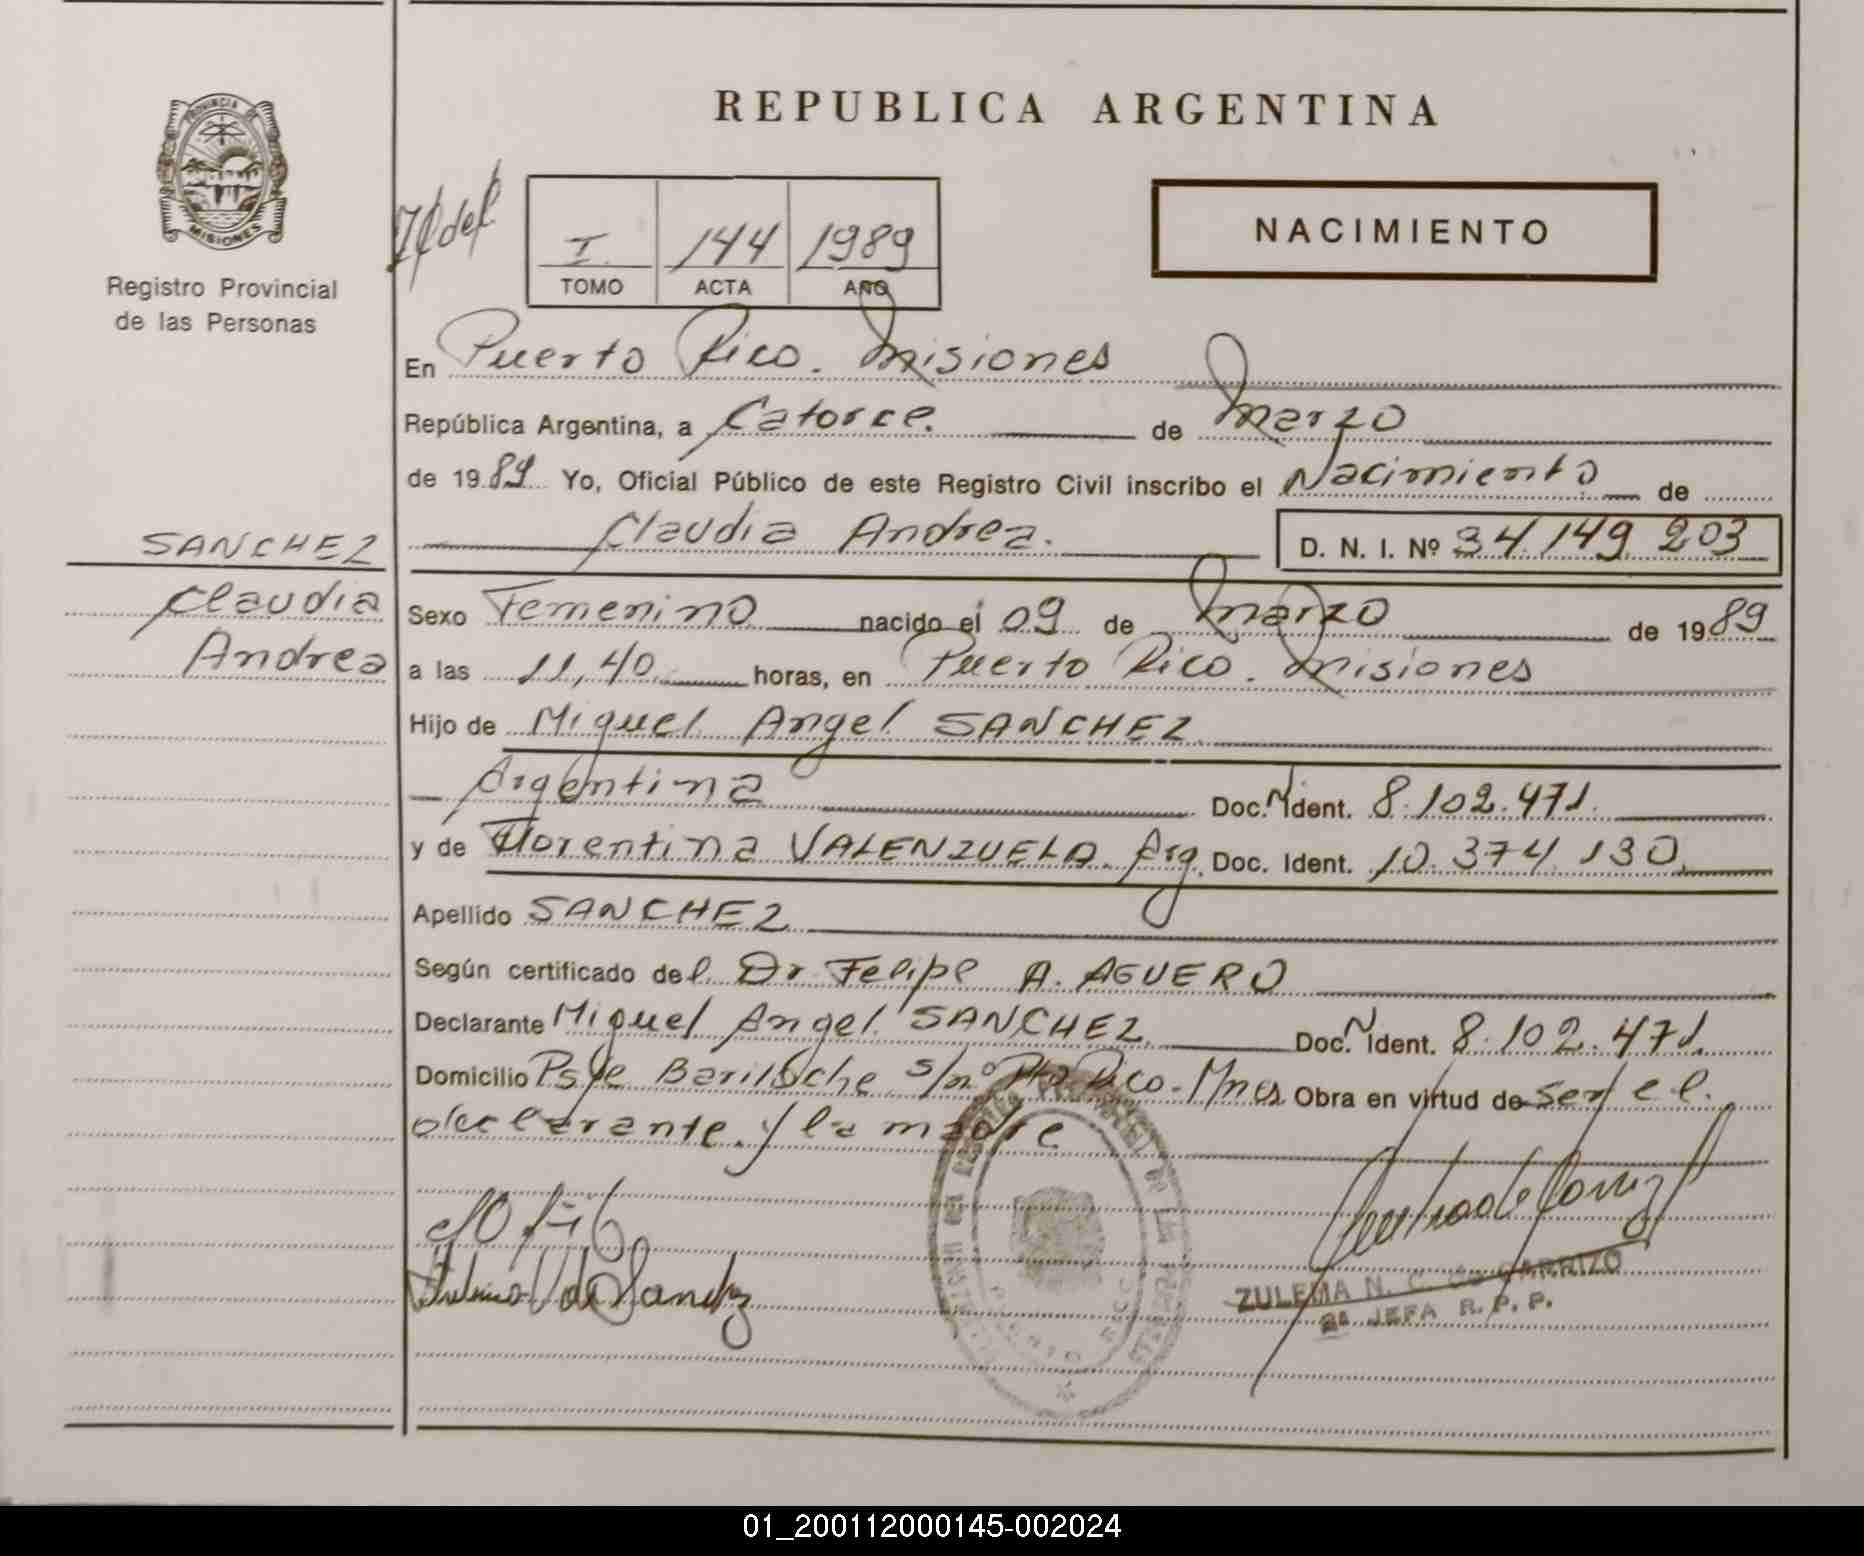 REPUBLICA ARGENTINA
PROVINCIA DE
MISIONES
Registro Provincial
de las Personas
I 144 1989
TOMO ACTA AÑO
NACIMIENTO
En Puerto Rico. Misiones
República Argentina, a Catorce. de Marzo
de 1989 Yo, Oficial Público de este Registro Civil inscribo el Nacimiento de
Claudia Andrea. D. N. I. Nº 34.149.203
SANCHEZ
Claudia
Andrea
Sexo Femenino nacido el 09 de Marzo de 1989
a las 11,40 horas, en Puerto Rico. Misiones
Hijo de Miguel Angel SANCHEZ
Argentina Doc. N Ident. 8.102.471.
y de Florentina VALENZUELA. Arg. Doc. Ident. 10.374.130
Apellido SANCHEZ
Según certificado del Dr Felipe A. AGUERO
Declarante Miguel Angel SANCHEZ Doc. N Ident. 8.102.471.
Domicilio Psje Bariloche s/nº Pto Rico - Mnes Obra en virtud de ser el
declarante y la madre
ZULEMA N. C. de CARRIZO
2ª JEFA R. P. P.
01_200112000145-002024